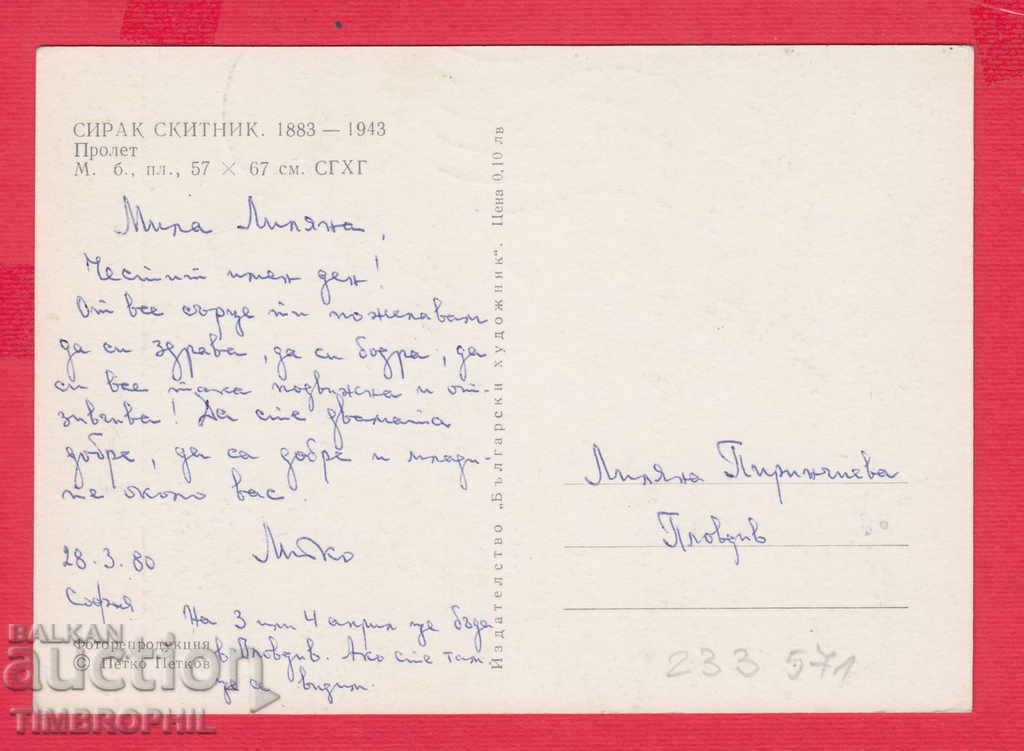 СИРАК СКИТНИК. 1883 — 1943
Пролет
М. б., пл., 57 × 67 см. СГХГ
Мила Лиляна,
Честит имен ден!
От все сърце ти пожелавам
да си здрава, да си бодра, да
си все така подвижна и от-
зивчива! Да сте двамата
добре, да са добре и млади-
те около вас.
Митко
28.3.80
София
На 3 или 4 април ще бъда
в Пловдив. Ако сте там
ще се видим.
Фоторепродукция
© Петко Петков
Издателство „Български художник“. Цена 0,10 лв
Лиляна Пиринчиева
Пловдив
233 571
BALKAN
auction
TIMBROPHIL